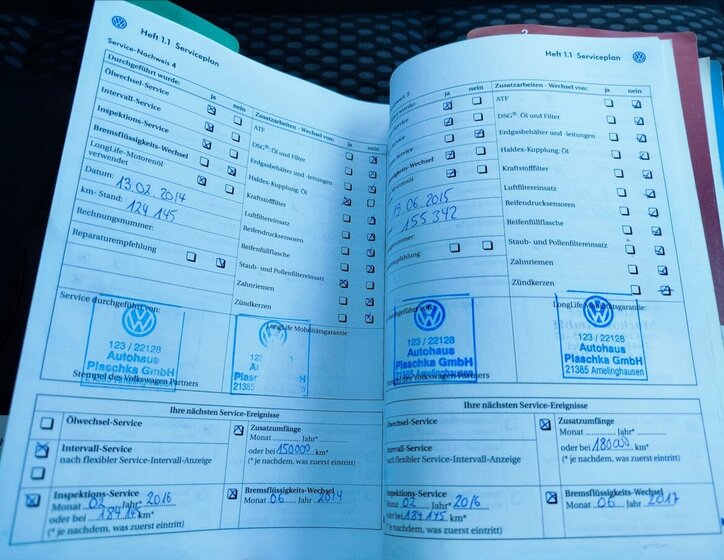 Heft 1.1 Serviceplan
Service-Nachweis 4
Durchgeführt wurde:
ja
nein
Ölwechsel-Service
Intervall-Service
Inspektions-Service
Bremsflüssigkeits-Wechsel
LongLife-Motorenöl
verwendet
Datum: 13.02.2014
km- Stand: 124 145
Rechnungsnummer:
Reparaturempfehlung
Zusatzarbeiten - Wechsel von:
ja
nein
ATF
DSG®: Öl und Filter
Erdgasbehälter und -leitungen
Haldex-Kupplung: Öl
Kraftstofffilter
Luftfiltereinsatz
Reifendrucksensoren
Reifenfüllflasche
Staub- und Pollenfiltereinsatz
Zahnriemen
Zündkerzen
Service durchgeführt von:
LongLife Mobilitätsgarantie:
123 / 22128
Autohaus
Plaschka GmbH
21385 Amelinghausen
Stempel des Volkswagen Partners
123
Ihre nächsten Service-Ereignisse
Ölwechsel-Service
Intervall-Service
nach flexibler Service-Intervall-Anzeige
Inspektions-Service
Monat 02 Jahr 2016
oder bei 184 145 km*
(* je nachdem, was zuerst eintritt)
Zusatzumfänge
Monat ........ Jahr* ........
oder bei 150000 km*
(* je nachdem, was zuerst eintritt)
Bremsflüssigkeits-Wechsel
Monat 06 Jahr 2014
Heft 1.1 Serviceplan
5
wurde:
ja
nein
Service
Service
Service
Wechsel
Motorenöl
19.06.2015
155 342
Zusatzarbeiten - Wechsel von:
ja
nein
ATF
DSG®: Öl und Filter
Erdgasbehälter und -leitungen
Haldex-Kupplung: Öl
Kraftstofffilter
Luftfiltereinsatz
Reifendrucksensoren
Reifenfüllflasche
Staub- und Pollenfiltereinsatz
Zahnriemen
Zündkerzen
LongLife Mobilitätsgarantie:
123 / 22128
Autohaus
Plaschka GmbH
21385 Amelinghausen
des Volkswagen Partners
123 / 22128
Autohaus
Plaschka GmbH
21385 Amelinghausen
Ihre nächsten Service-Ereignisse
Ölwechsel-Service
Intervall-Service
nach flexibler Service-Intervall-Anzeige
Inspektions-Service
Monat 02 Jahr 2016
oder bei 184 145 km*
(* je nachdem, was zuerst eintritt)
Zusatzumfänge
Monat ........ Jahr* ........
oder bei 180000 km*
(* je nachdem, was zuerst eintritt)
Bremsflüssigkeits-Wechsel
Monat 06 Jahr 2017